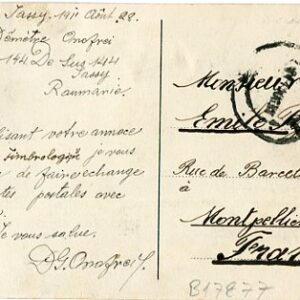 Jassy, 19 Août 22.
Démètre Onofrei
144 De Sus 144
Jassy
Roumanie.
lisant votre annoce
Timbrologie je vous
de faire echange
tes postales avec
Je vous salue.
D.G. Onofrei
Emile
Rue de Barcel
à
Montpellier
Fran
B17877